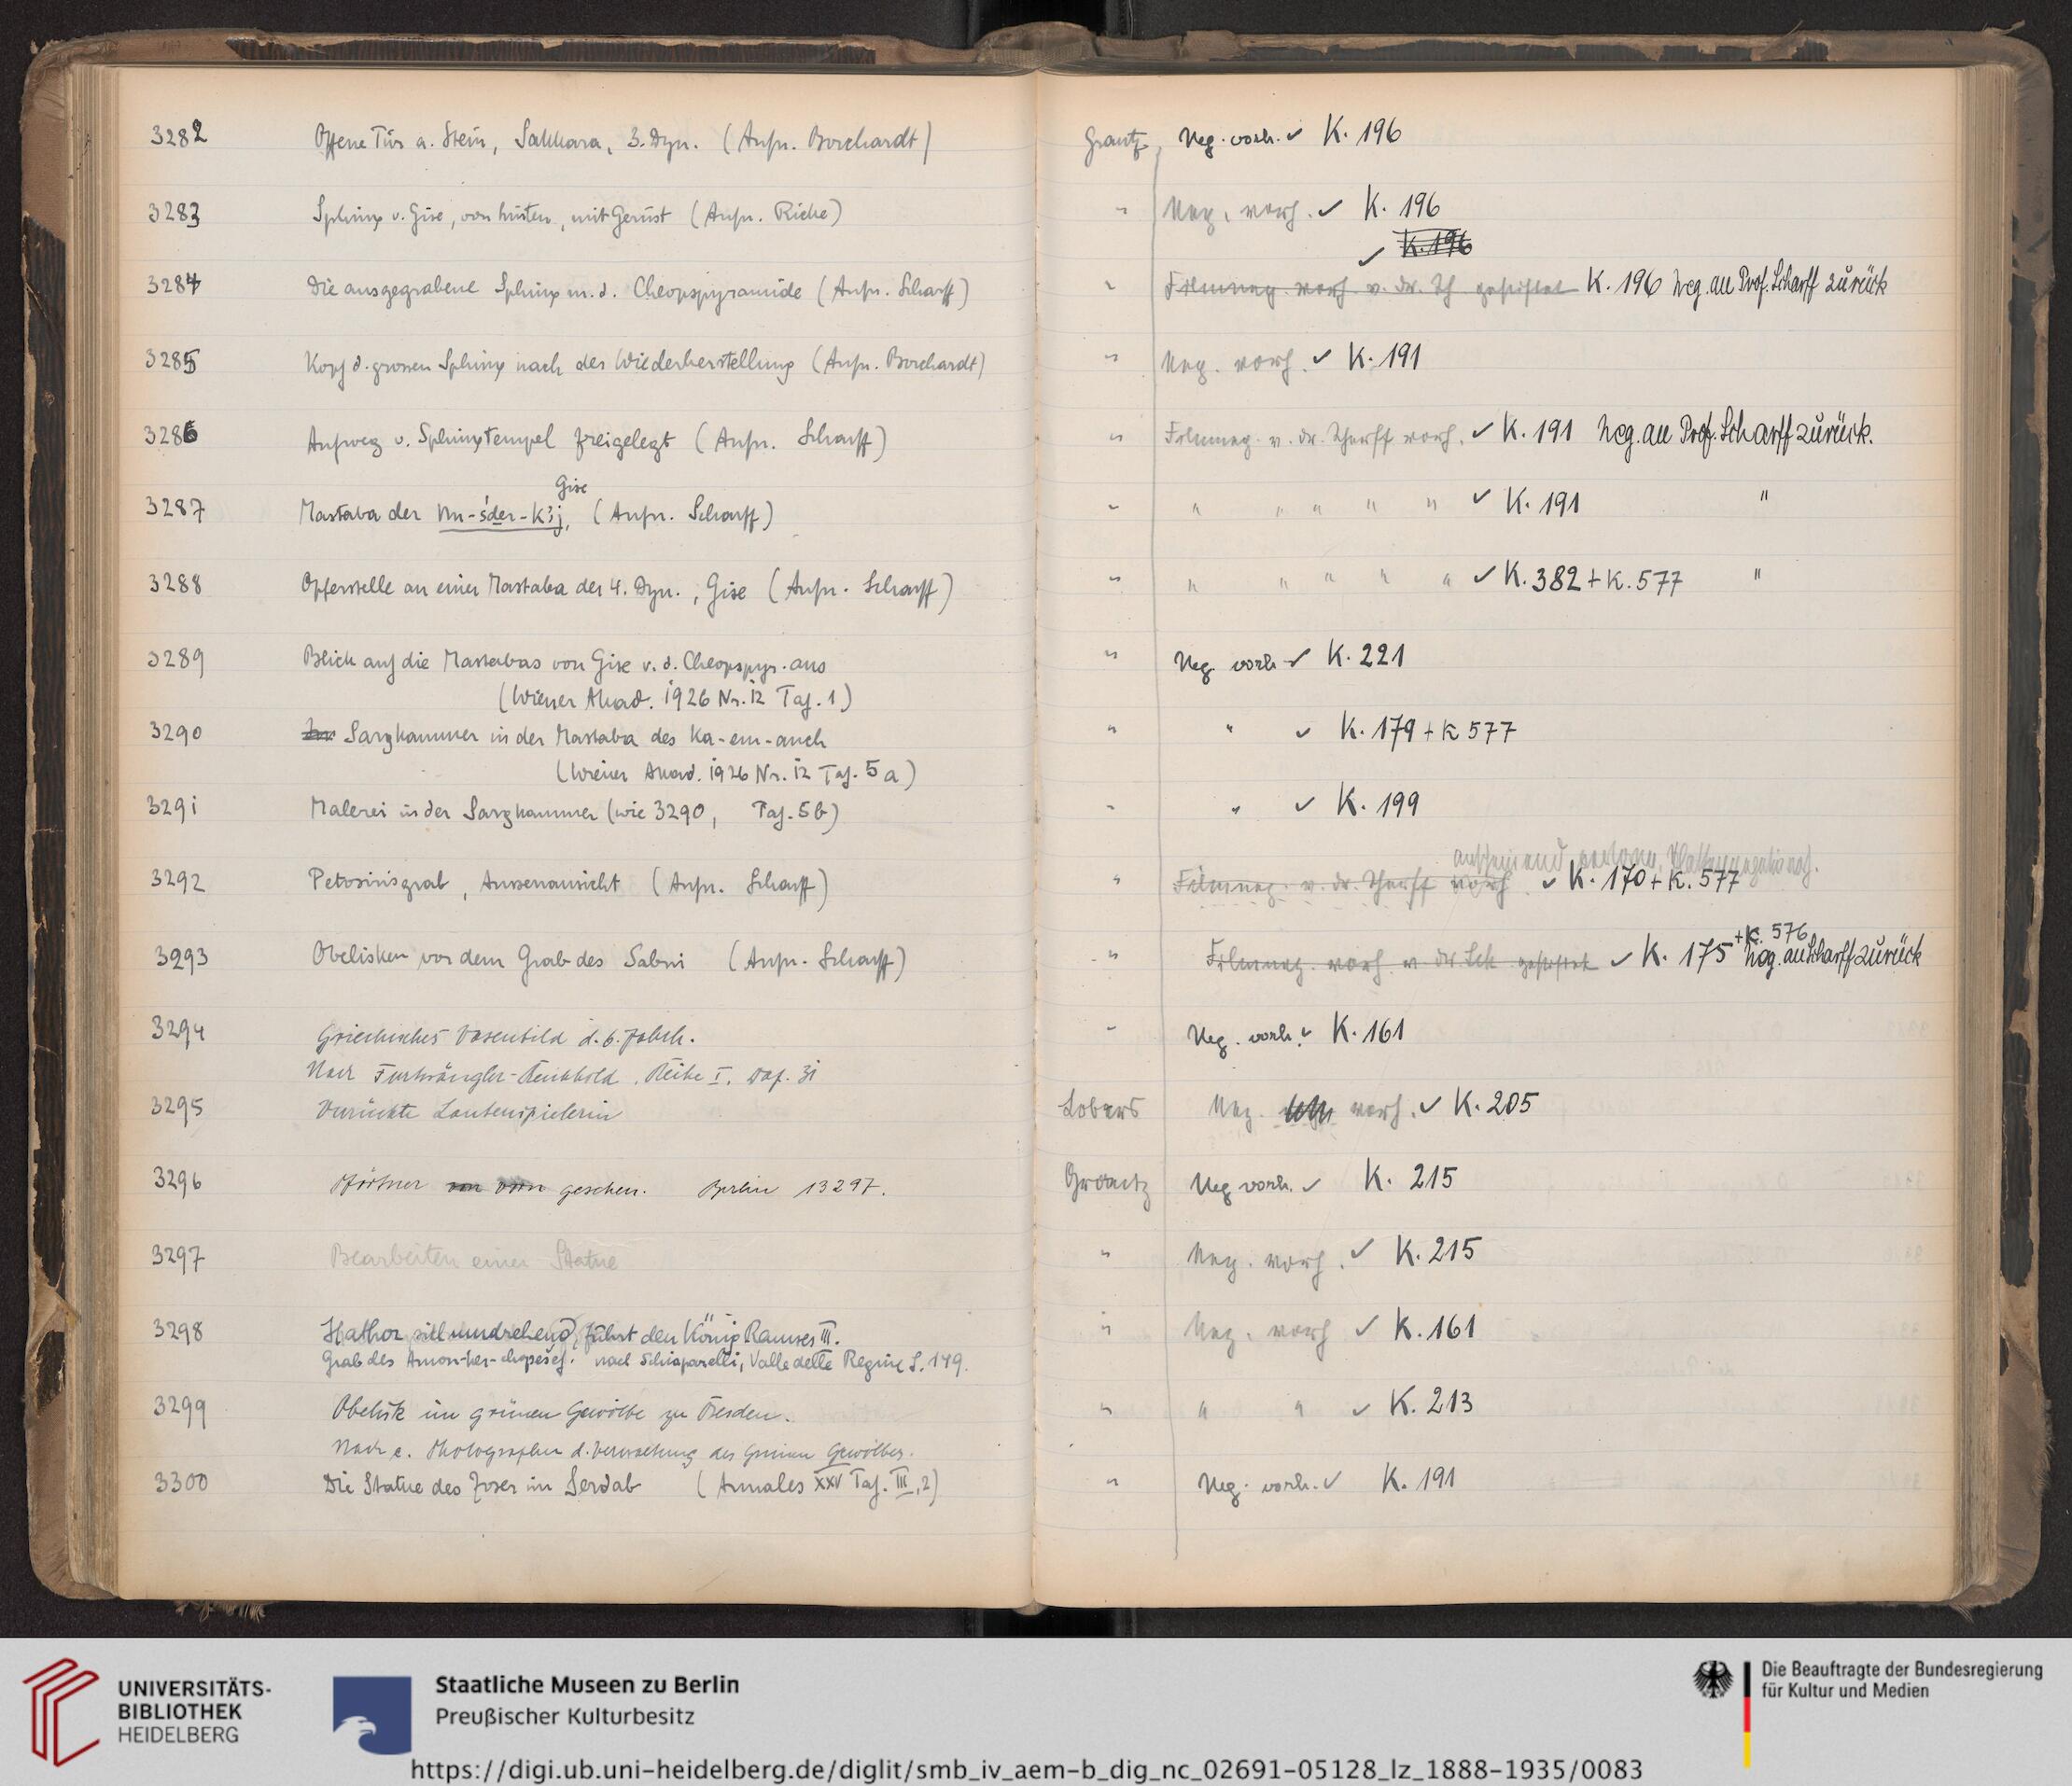 3282 Offene Tür a. Stein, Sakkara, 3. Dyn. (Aufn. Borchardt) Grantz Neg. vorh. ✓ K. 196
3283 Sphinx v. Gise, von hinten, mit Gerüst (Aufn. Ricke) " Neg. vorh. ✓ K. 196
✓ K. 196
3284 Die ausgegrabene Sphinx m. d. Cheopspyramide (Aufn. Scharff) " Filmneg. vorh. v. Dr. Sch gestiftet K. 196 Neg. an Prof. Scharff zurück
3285 Kopf d. grossen Sphinx nach der Wiederherstellung (Aufn. Borchardt) " Neg. vorh. ✓ K. 191
3286 Aufweg v. Sphinxtempel freigelegt (Aufn. Scharff) " Filmneg. v. Dr. Scharff vorh. ✓ K. 191 Neg. an Prof. Scharff zurück.
Gise
3287 Mastaba der (Aufn. Scharff) " " " " " " ✓ K. 191 "
3288 Opferstelle an einer Mastaba der 4. Dyn., Gise (Aufn. Scharff) " " " " " " ✓ K. 382 + K. 577 "
3289 Blick auf die Mastabas von Gise v. d. Cheopspyr. aus " Neg. vorh ✓ K. 221
(Wiener Akad. 1926 Nr. 12 Taf. 1)
3290 Sargkammer in der Mastaba des Ka-em-anch " " ✓ K. 179 + K 577
(Wiener Akad. 1926 Nr. 12 Taf. 5a)
3291 Malerei in der Sargkammer (wie 3290, Taf. 5b) " " ✓ K. 199
anscheinend verloren,
3292 Petosirisgrab, Aussenansicht (Aufn. Scharff) " Filmneg. v. Dr. Scharff vorh ✓ K. 170 + K. 577
+ K. 576
3293 Obelisken vor dem Grab des Sabni (Aufn. Scharff) " Filmneg. vorh v. Dr Sch gestiftet ✓ K. 175 Neg. an Scharff zurück
3294 Griechisches Vasenbild d. 6. Jahrh. " Neg. vorh. ✓ K. 161
Nach Furtwängler-Reichhold. Reihe I. Taf. 31
3295 Verrückte Lautenspielerin Lobers Neg. vorh. ✓ K. 205
3296 Pförtner von vorn gesehen. Berlin 13297. Grantz Neg vorh. ✓ K. 215
3297 Bearbeiten einer Statue " Neg. vorh. ✓ K. 215
3298 Hathor sich umdrehend, führt den König Ramses III. " Neg. vorh ✓ K. 161
Grab des Amon-her-chopeschef. nach Schiaparelli, Valle delle Regine S. 149.
3299 Obelisk im grünen Gewölbe zu Dresden. " " " ✓ K. 213
Nach e. Photographie d. Verwaltung des Grünen Gewölbes.
3300 Die Statue des Zoser im Serdab (Annales XXV Taf. III, 2) " Neg. vorh. ✓ K. 191
UNIVERSITÄTS-
BIBLIOTHEK
HEIDELBERG
Staatliche Museen zu Berlin
Preußischer Kulturbesitz
Die Beauftragte der Bundesregierung
für Kultur und Medien
https://digi.ub.uni-heidelberg.de/diglit/smb_iv_aem-b_dig_nc_02691-05128_lz_1888-1935/0083